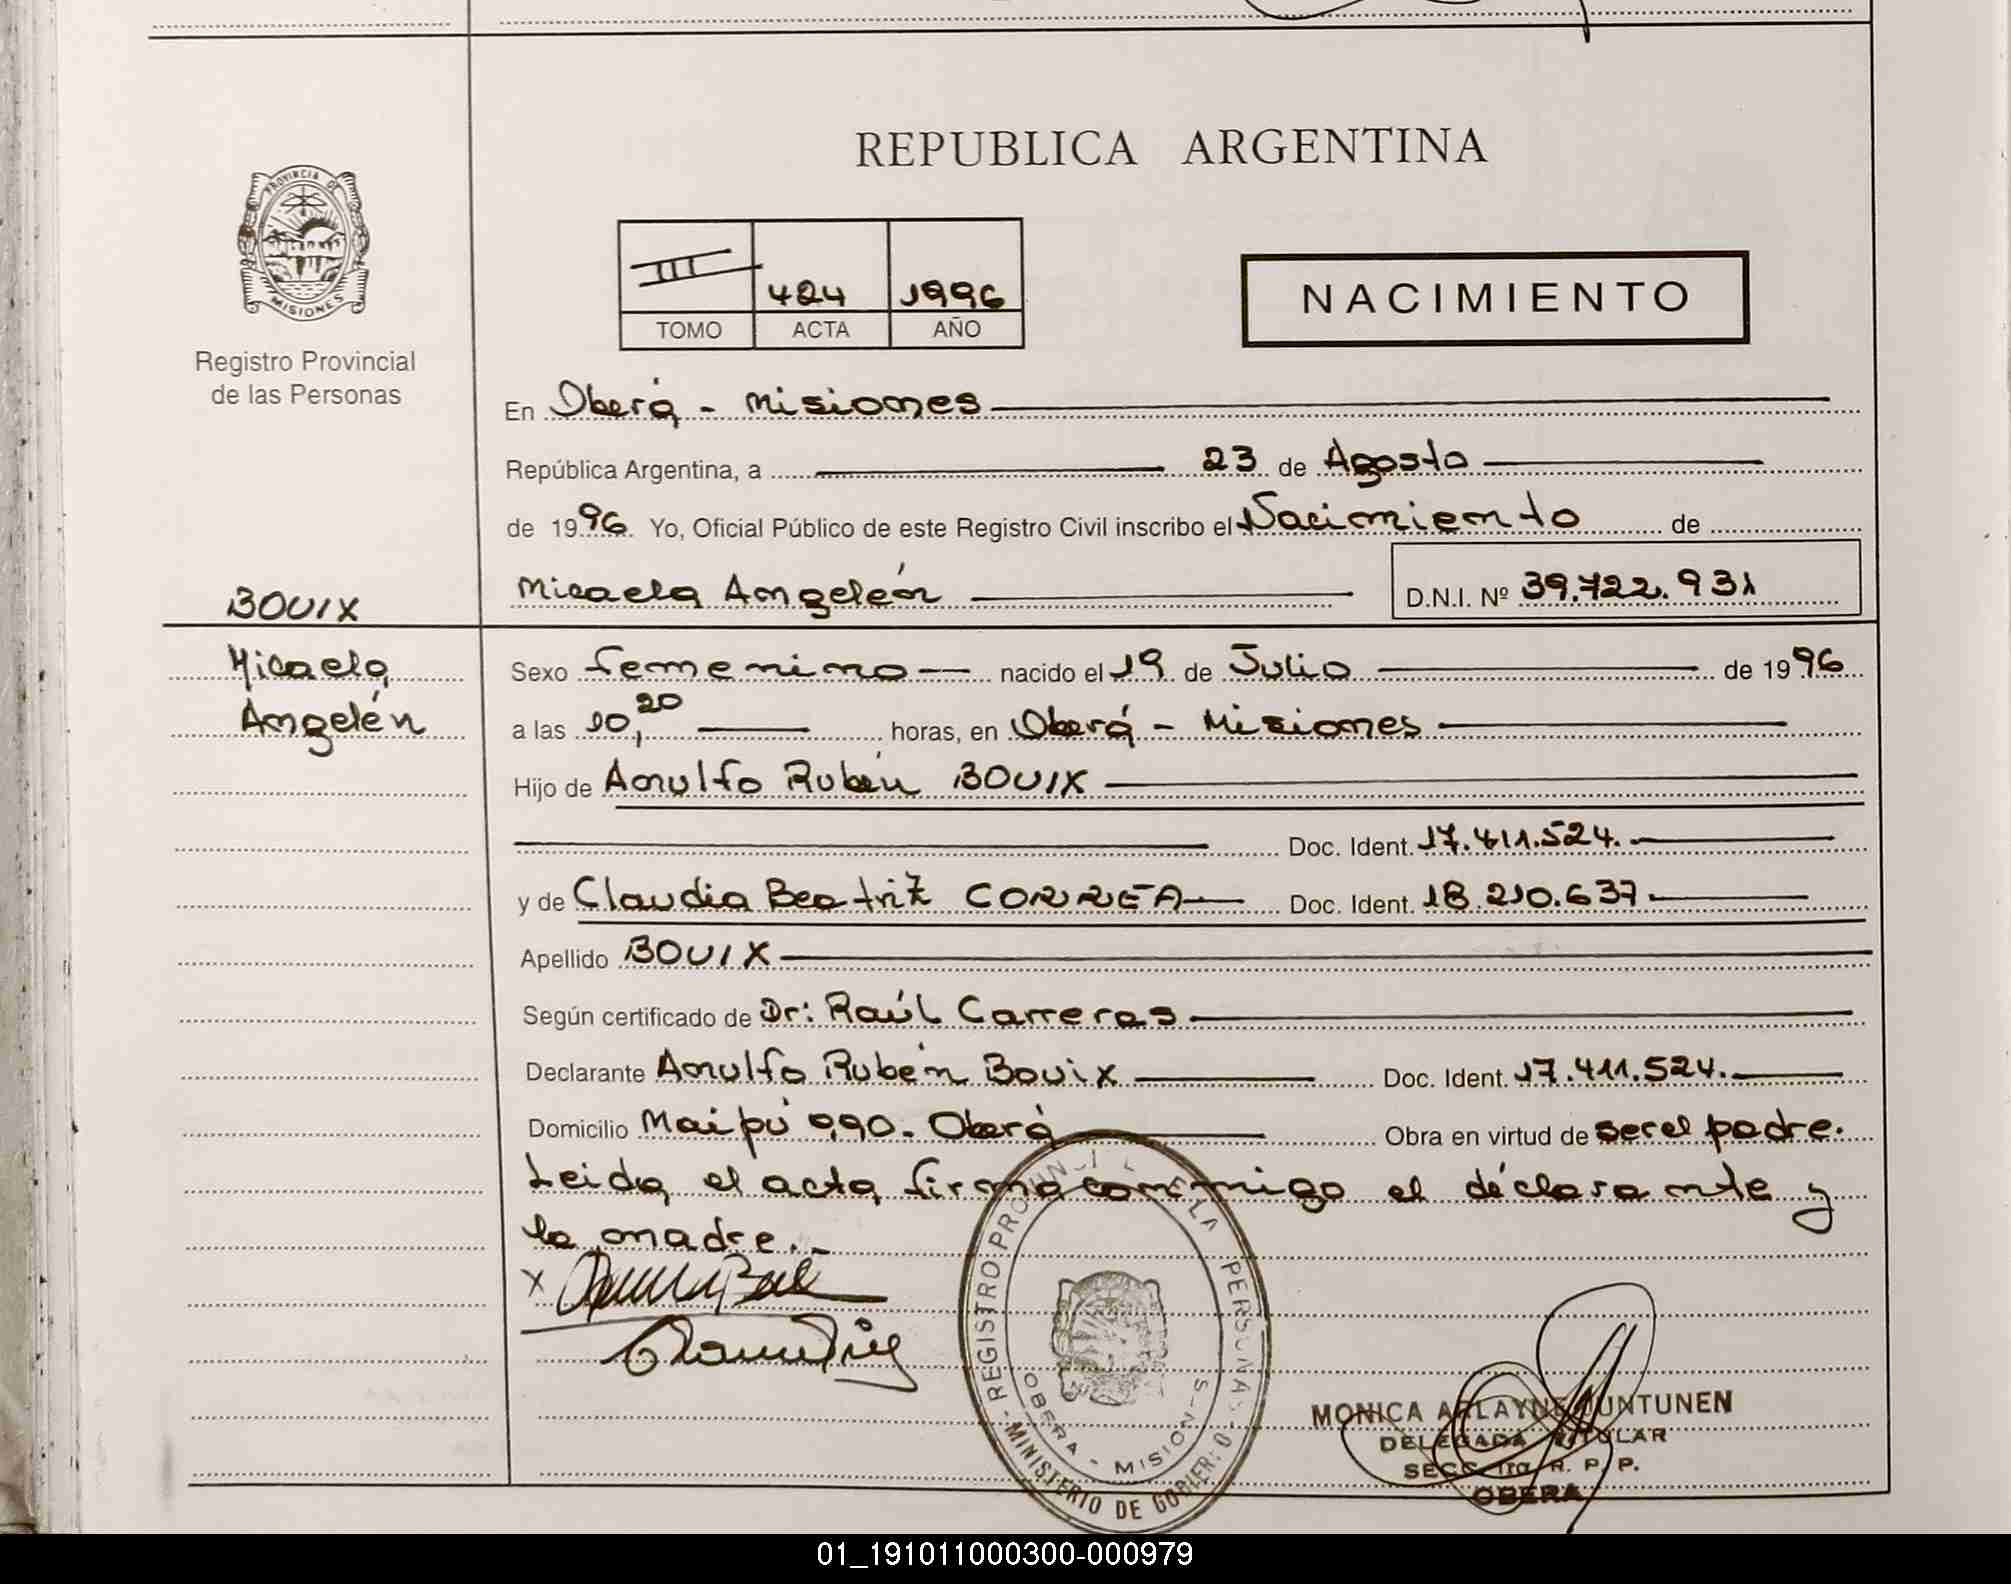 PROVINCIA DE
MISIONES
Registro Provincial
de las Personas
REPUBLICA ARGENTINA
III 424 1996
TOMO ACTA AÑO
NACIMIENTO
En Oberá - Misiones
República Argentina, a 23 de Agosto
de 1996 Yo, Oficial Público de este Registro Civil inscribo el Nacimiento de
Micaela Angelén D.N.I. Nº 39.722.931
BOUIX
Micaela
Angelén
Sexo femenino nacido el 19 de Julio de 1996
a las 10,20 horas, en Oberá - Misiones
Hijo de Arnulfo Rubén BOUIX
Doc. Ident. 17.411.524.
y de Claudia Beatriz CORREA Doc. Ident. 18.210.637
Apellido BOUIX
Según certificado de Dr: Raúl Carreras
Declarante Arnulfo Rubén Bouix Doc. Ident. 17.411.524.
Domicilio Maipú 990. Oberá Obra en virtud de ser el padre.
Leida el acta firma conmigo el declarante y
la madre.-
x
REGISTRO PROVINCIAL DE LA PERSONAS
OBERA - MISIONES
MINISTERIO DE GOBIERNO
MONICA ARLAYNE JUNTUNEN
DELEGADA TITULAR
SECC. 1ra R. P. P.
OBERA
01_191011000300-000979